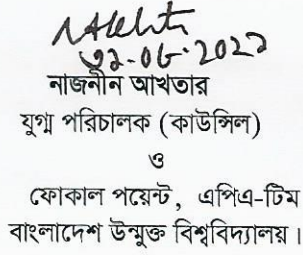 নাজনীন আখতার
যুগ্ম পরিচালক (কাউন্সিল)
ও
ফোকাল পয়েন্ট, এপিএ-টিম
বাংলাদেশ উন্মুক্ত বিশ্ববিদ্যালয়।